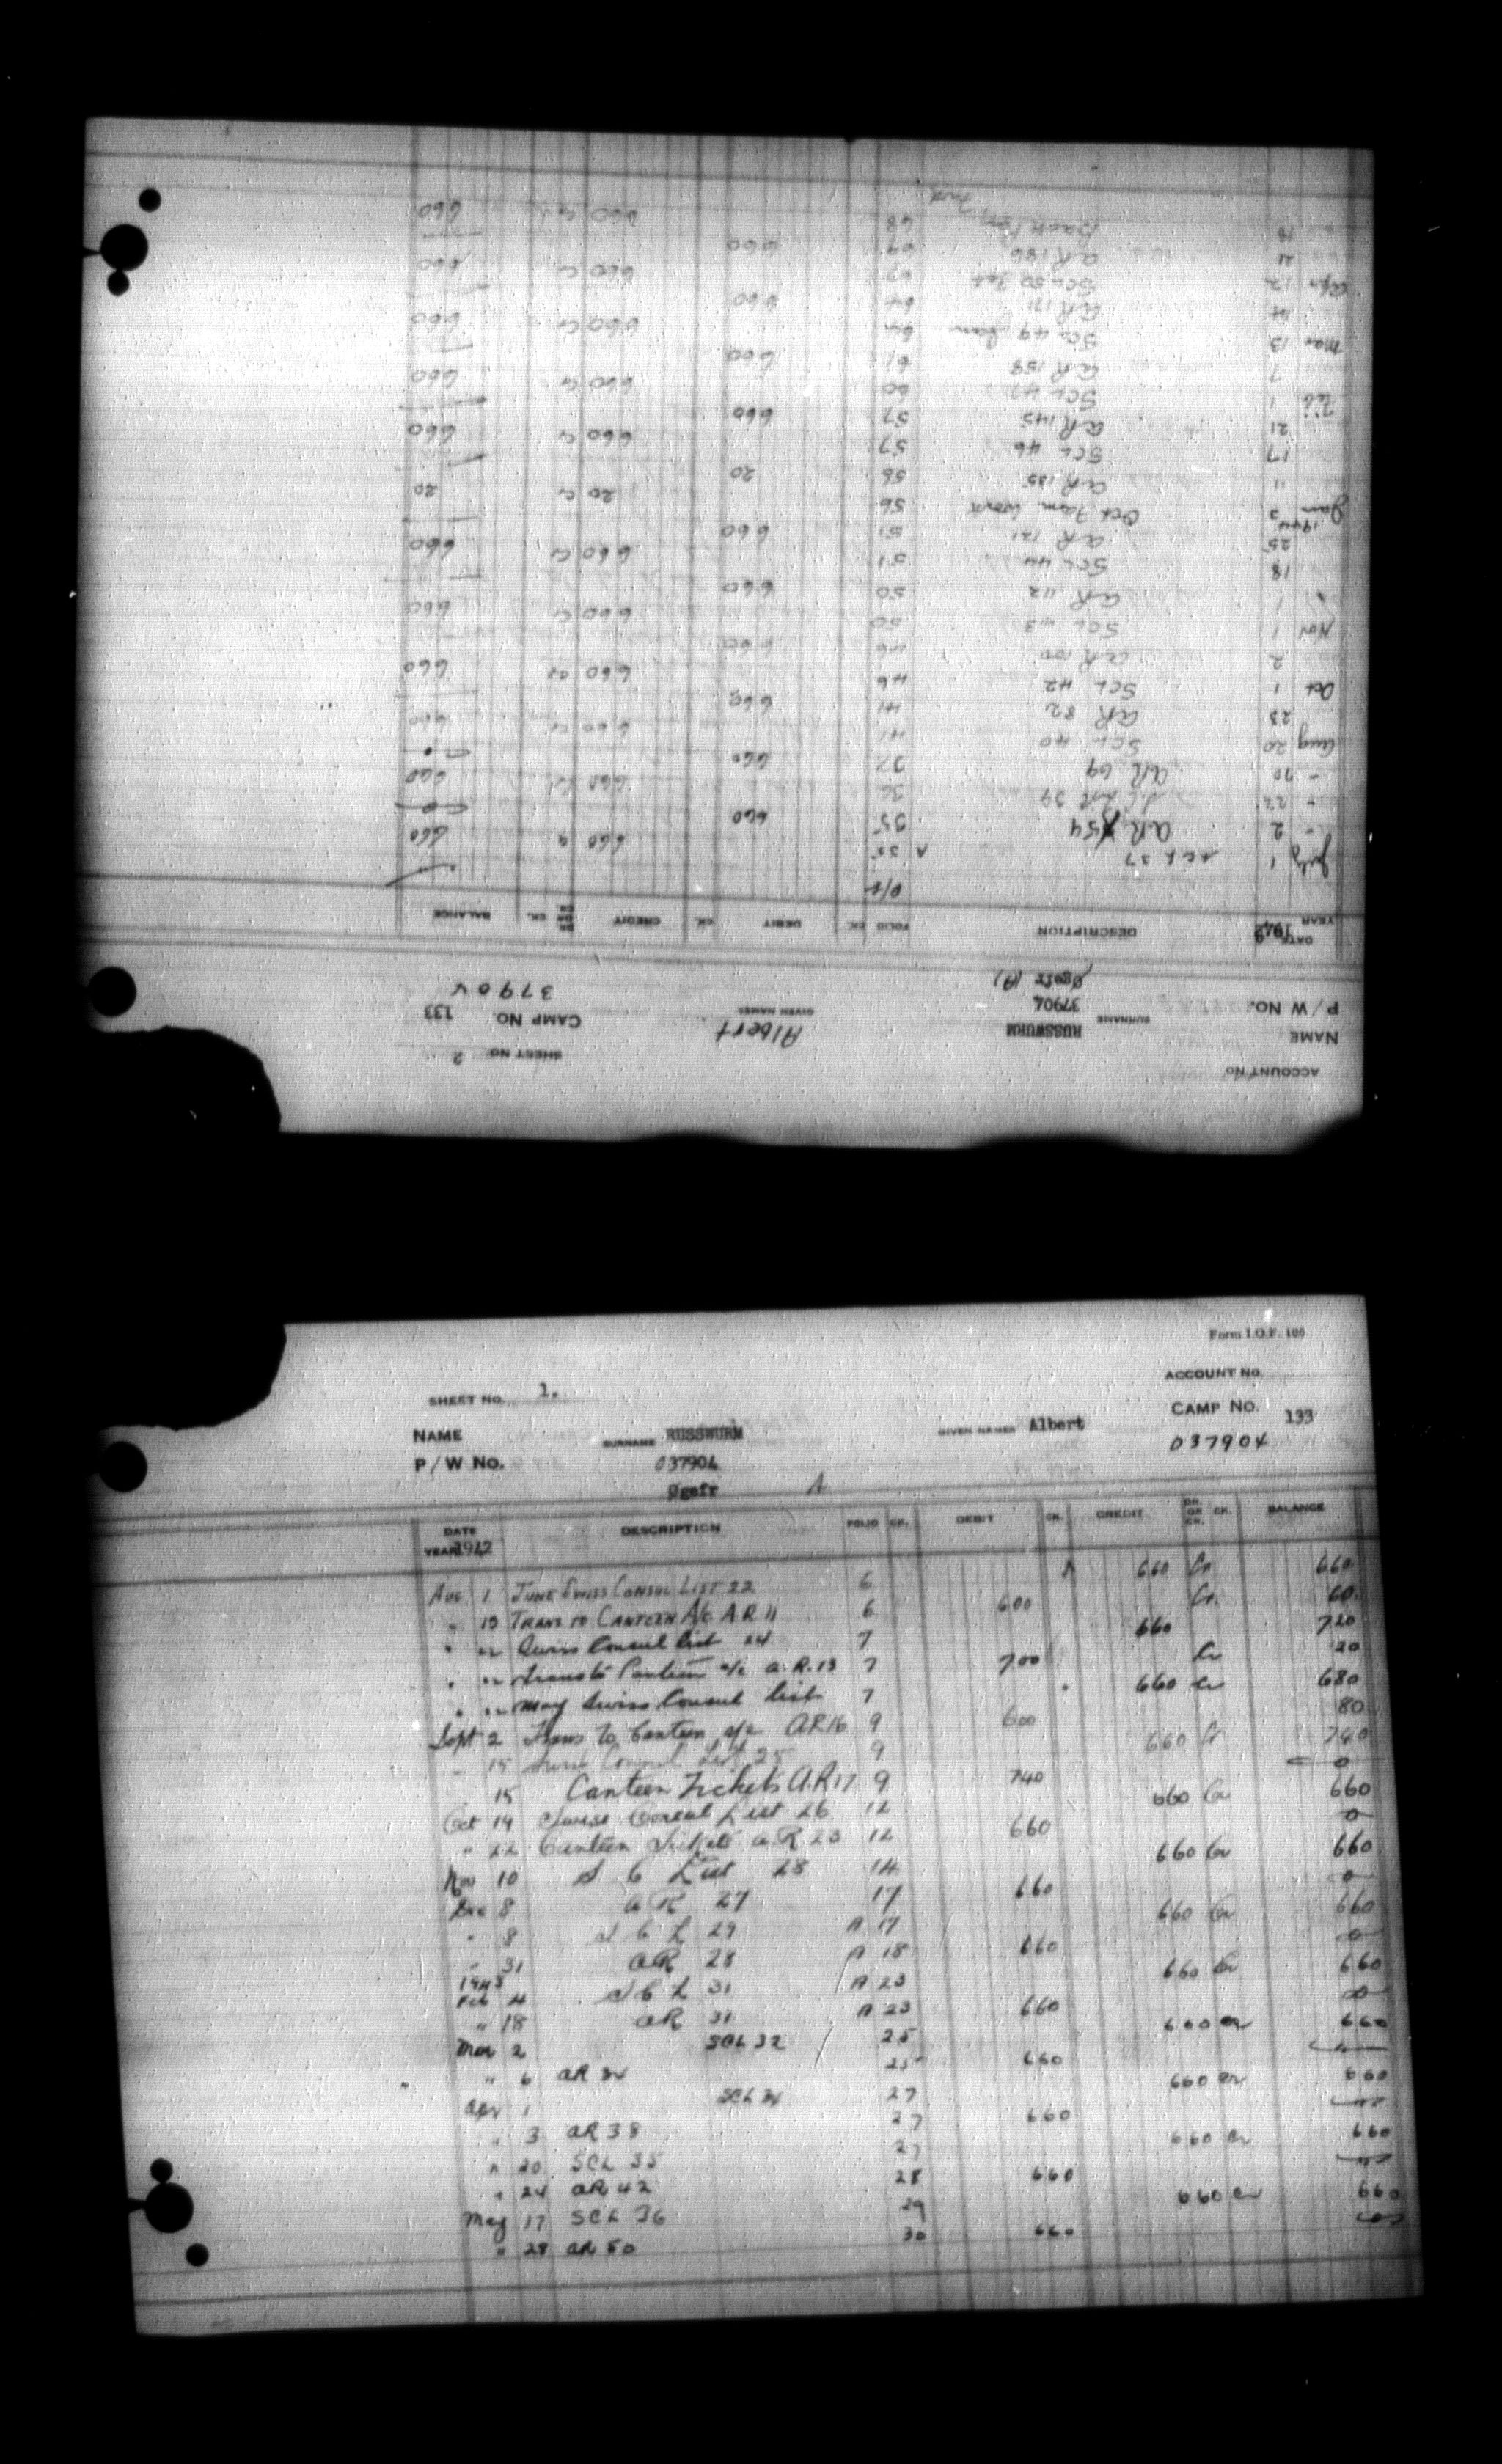 SHEET NO. 2
ACCOUNT NO.
NAME SURNAME RUSSWURM GIVEN NAMES Albert CAMP NO. 133
P/W NO. 37904 37904
Ogefr (A)
DATE YEAR 1943 DESCRIPTION FOLIO CK. DEBIT CK. CREDIT DR. OR CR. CK. BALANCE
July 1 SCL 37 A 35 660 Cr 660
" 2 AR 54 35 660 0
" 22 39 36 660 660
" 30 AR 69 37 660 0
Aug 20 SCL 40 41 660 Cr 660
23 AR 82 41 660
Oct 1 SCL 42 46 660 Cr 660
2 AR 100 46 660
Nov 1 SCL 43 50 660 Cr 660
" 1 AR 112 50 660
18 SCL 44 51 660 Cr 660
25 AR 121 51 660
1944 Jan 3 Oct Farm Work 56 20 Cr 20
11 AR 135 56 20
17 SCL 46 57 660 Cr 660
21 AR 145 57 660
Feb 1 SCL 47 60 660 Cr 660
7 AR 158 61 660
Mar 13 SCL 49 Jan 64 660 Cr 660
14 AR 171 64 660
Apr 12 SCL 50 Feb 67 660 Cr 660
21 AR 186 69 660
68 660 Cr 660
Form I.O.F. 106
SHEET NO. 1. ACCOUNT NO.
NAME SURNAME RUSSWURM GIVEN NAMES Albert CAMP NO. 133
P/W No. 037904 037904
Ogefr A
DATE YEAR 1942 DESCRIPTION FOLIO CK. DEBIT CK. CREDIT DR. OR CR. CK. BALANCE
Aug 1 JUNE SWISS CONSUL LIST 22 6 660 Cr 660
" 13 TRANS TO CANTEEN A/C A.R 11 6 600 Cr. 60
" " Swiss Consul list 24 7 660 720
" " Trans to Canteen a/c A.R. 13 7 700 Cr 20
" " May Swiss Consul list 7 660 Cr 680
Sept 2 Trans to Canteen a/c AR 16 9 600 80
" 15 Swiss Consul List 25 9 660 Cr 740
15 Canteen Tickets A.R 17 9 740 0
Oct 19 Swiss Consul List 26 12 660 Cr 660
" 22 Canteen Tickets A.R 23 12 660 0
Nov 10 S C List 28 14 660 Cr 660
Dec 8 AR 27 17 660 0
" 8 S C L 29 A 17 660 Cr 660
" 31 AR 28 A 18 660 0
1943
Feb 4 S C L 31 A 23 660 Cr 660
" 18 AR 31 A 23 660 0
Mar 2 SCL 32 25 660 Cr 660
" 6 AR 34 25 660
Apr 1 SCL 34 27 660 Cr 660
" 3 AR 38 27 660
" 20 SCL 35 27 660 Cr 660
" 24 AR 42 28 660
May 17 SCL 36 29 660 Cr 660
" 28 AR 50 30 660